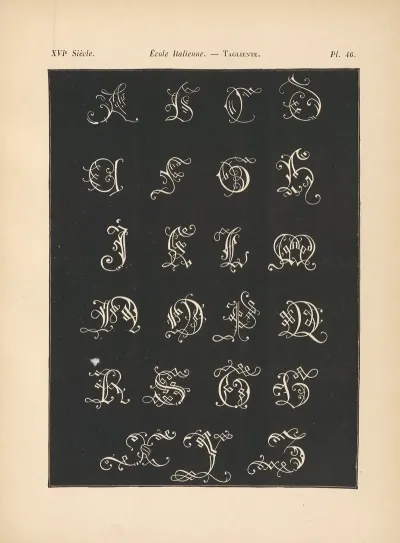 XVIᵉ Siècle. École Italienne. — TAGLIENTE. Pl. 46.
A B C D
E F G H
I K L M
N O P Q
R S T V
X Y Z